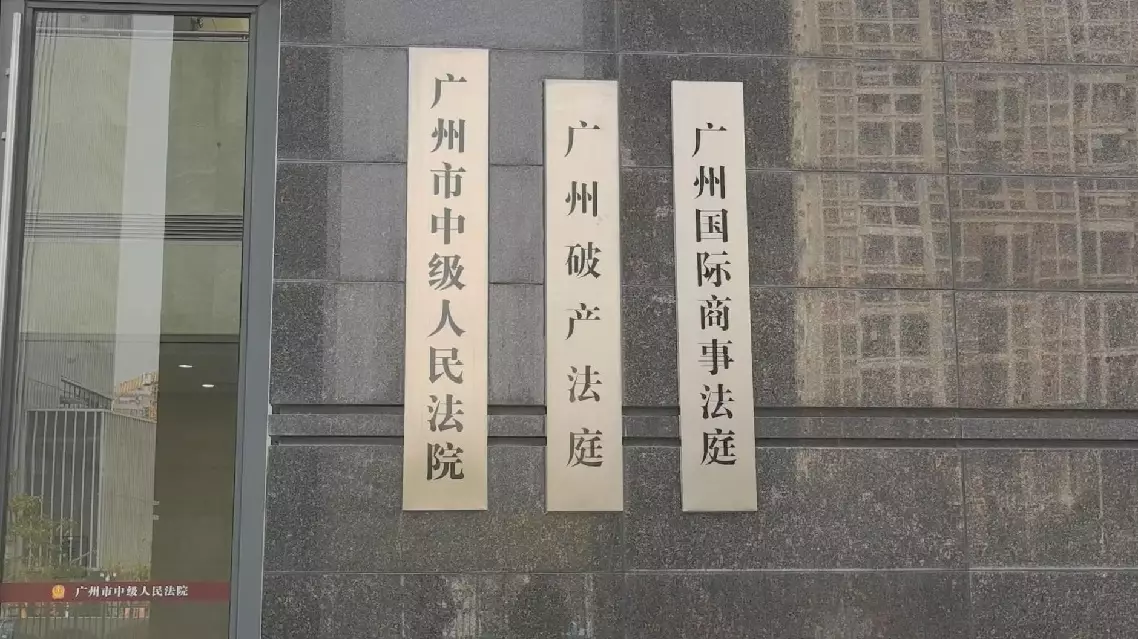 广州市中级人民法院
广州破产法庭
广州国际商事法庭
广州市中级人民法院